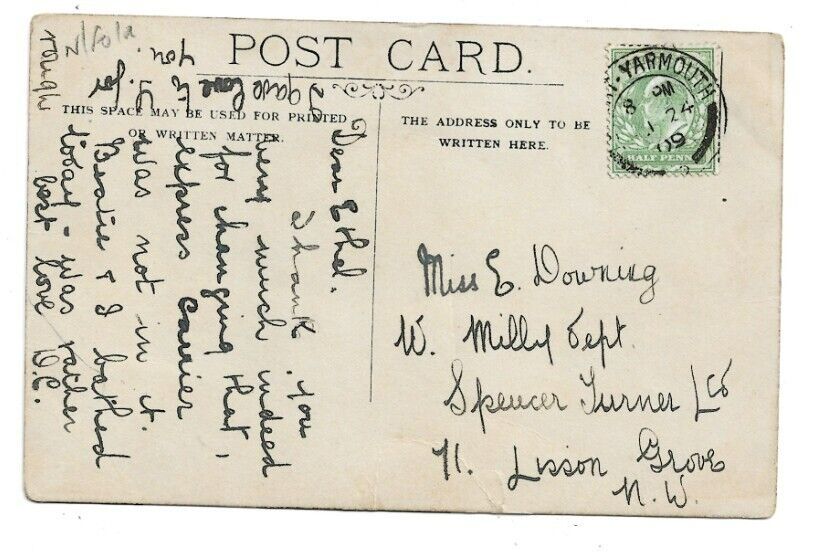 POST CARD.
THIS SPACE MAY BE USED FOR PRINTED
OR WRITTEN MATTER.
THE ADDRESS ONLY TO BE
WRITTEN HERE.
YARMOUTH
8 PM
24
09
HALF PENNY
Dear Ethel.
Thank you
very much indeed
for changing that,
express carrier
was not in it.
Beatie & I bathed
today - was rather
rough best love D.C.
I gave love to
you.
Miss E. Downing
W. Milly Dept.
Spencer Turner & Co
Lisson Grove
N.W.